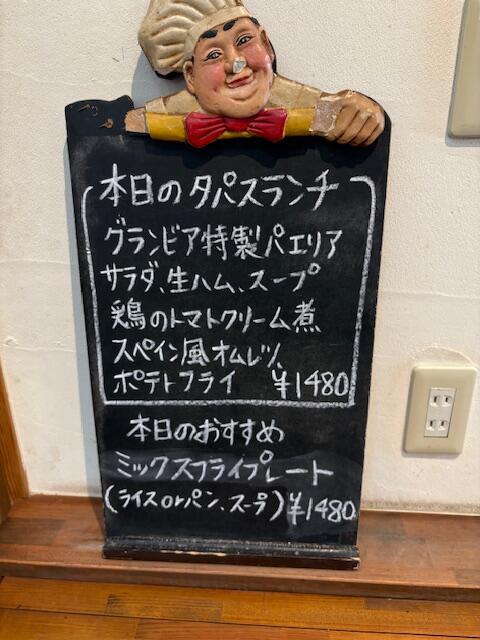 本日のタパスランチ
グランビア特製パエリア
サラダ、生ハム、スープ
鶏のトマトクリーム煮
スペイン風オムレツ、
ポテトフライ ¥1480
本日のおすすめ
ミックスフライプレート
(ライスorパン、スープ) ¥1480